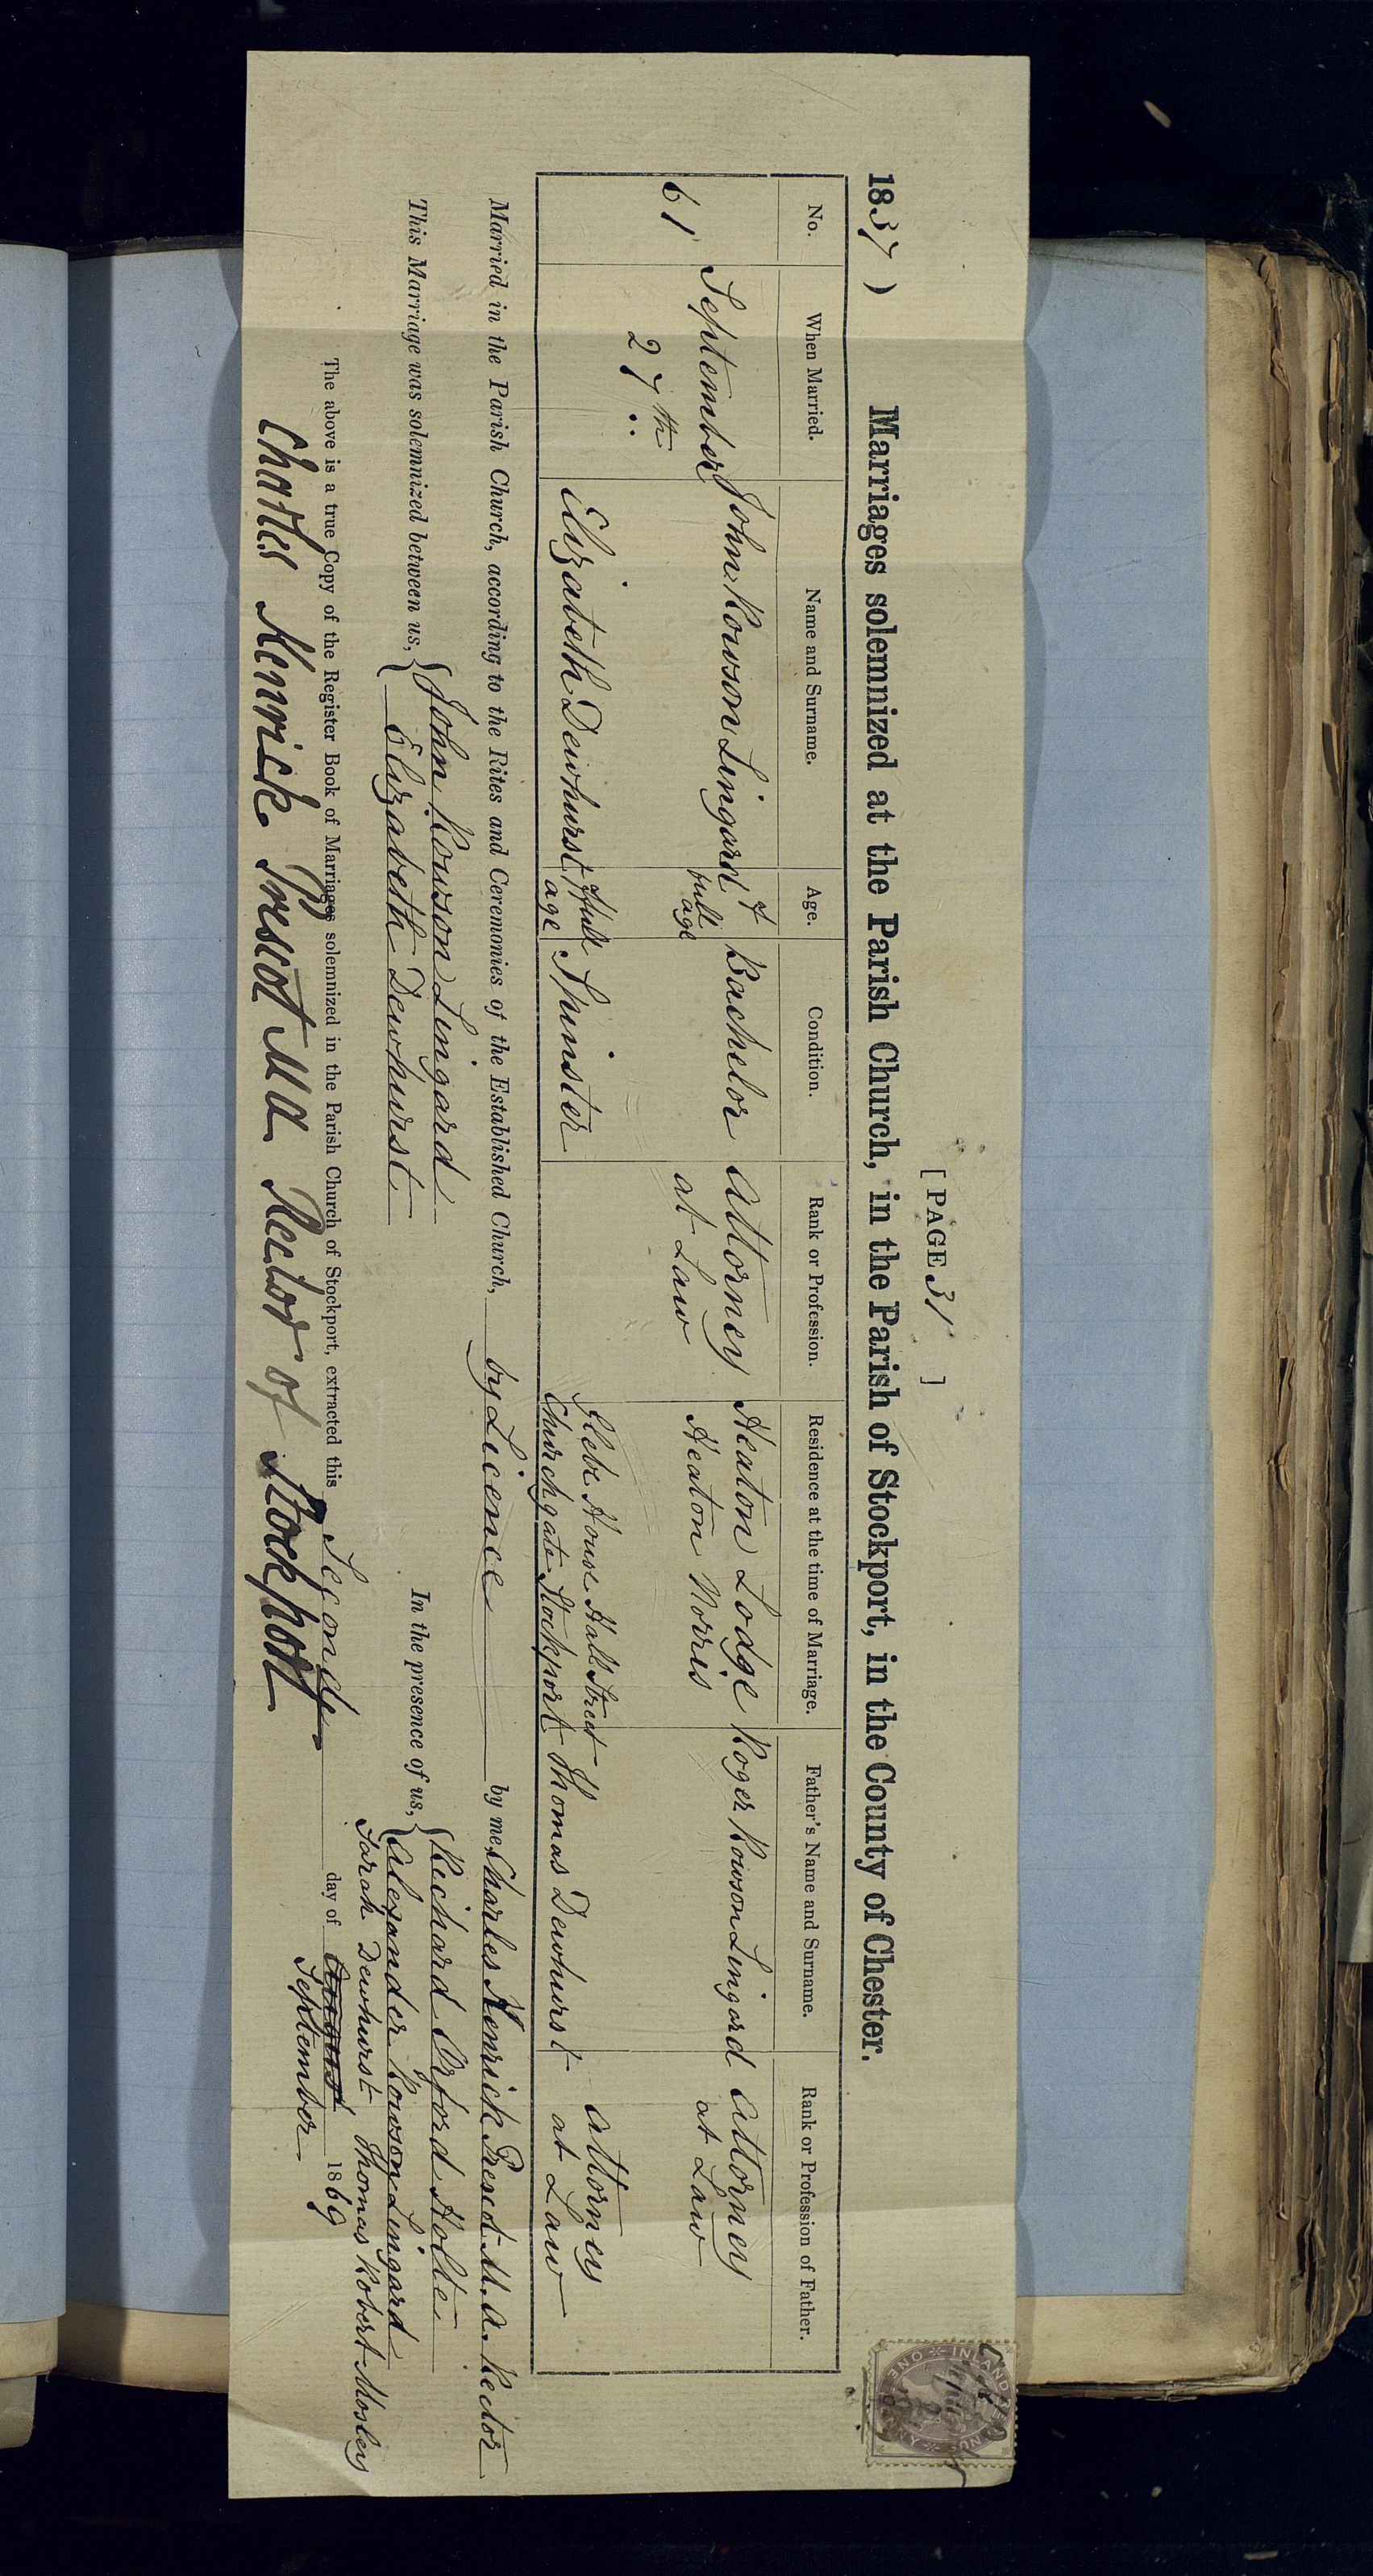 [ PAGE 31 ]
1837 ) Marriages solemnized at the Parish Church, in the Parish of Stockport, in the County of Chester.
No. When Married. Name and Surname. Age. Condition. Rank or Profession. Residence at the time of Marriage. Father's Name and Surname. Rank or Profession of Father.
61 September 27th John Rowson Lingard of full age Bachelor Attorney at Law Heaton Lodge Heaton Norris Roger Rowson Lingard Attorney at Law
Elizabeth Dewhurst of full age Spinster Glebe House Hall Street Churchgate Stockport Thomas Dewhurst Attorney at Law
Married in the Parish Church, according to the Rites and Ceremonies of the Established Church, by Licence by me, Charles Kenrick Prescot M.A. Rector
This Marriage was solemnized between us, { John Rowson Lingard In the presence of us, { Richard Orford Holte
Elizabeth Dewhurst Alexander Rowson Lingard
Sarah Dewhurst Thomas Robert Mosley
The above is a true Copy of the Register Book of Marriages solemnized in the Parish Church of Stockport, extracted this Second day of August 1869
September
Charles Kenrick Prescot MA Rector of Stockport
INLAND REVENUE
ONE PENNY